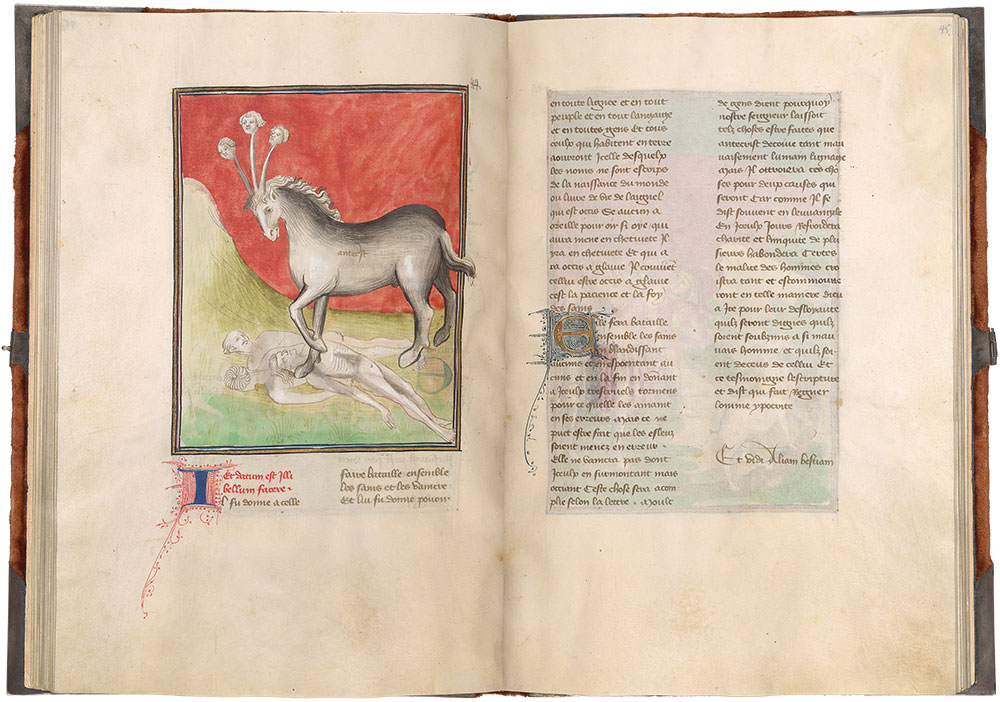 antecrist
Et datum est illi
bellum facere ·
Il fu donne a celle
faire bataille ensemble
les sains et les vaincre
Et lui fu donne pouoir
45
en toute lignee et en tout
peuple et en tout langaige
et en toutes gens Et tous
ceulx qui habitent en terre
aouront Icelle desquelx
les noms ne sont escrips
de la naissance du monde
ou liure de vie de laignel
qui est occis Se aucun a
oreille pour oir si oye qui
aura mene en chetiuete Il
yra en chetiuete Et qui a
ra occis a glaiue Il couuient
cellui estre occis a glaiue
cest la pacience et la foy
des sains
Elle fera bataille
ensemble les sains
en blandissant
aucuns et en espoentant au
cuns et en la fin en donant
a Iceulx tres cruels tormens
pour ce quelle les amaint
en ses erreurs Mais ce ne
puet estre fait que les esleuz
soient menez en erreur ·
Elle ne vaincra pas dont
Iceulx en surmontant mais
occiant Ceste chose sera acom
plie selon la lettre · Moult
de gens dient pourquoy
nostre seigneur laissoit
telz choses estre faites que
antecrist decoiue tant mau
uaisement lumain lignaige
Mais Il ottroiera ces cho
ses pour deux causes qui
seront Car comme Il se
dist souuent en leuuangile
En Iceulx Jours Refroidera
charite et Iniquite de plu
sieurs habondera Certes
le malice des hommes cro
istra tant et esmouue
ront en telle maniere dieu
a Ire pour leur desloyaute
quilz seront dignes quilz
soient soubzmis a si mau
uais homme et quilz soi
ent deceus de cellui Et
ce tesmoigne lescripture
et dist qui fait Regner
lomme ypocrite
Et vidi Aliam bestiam